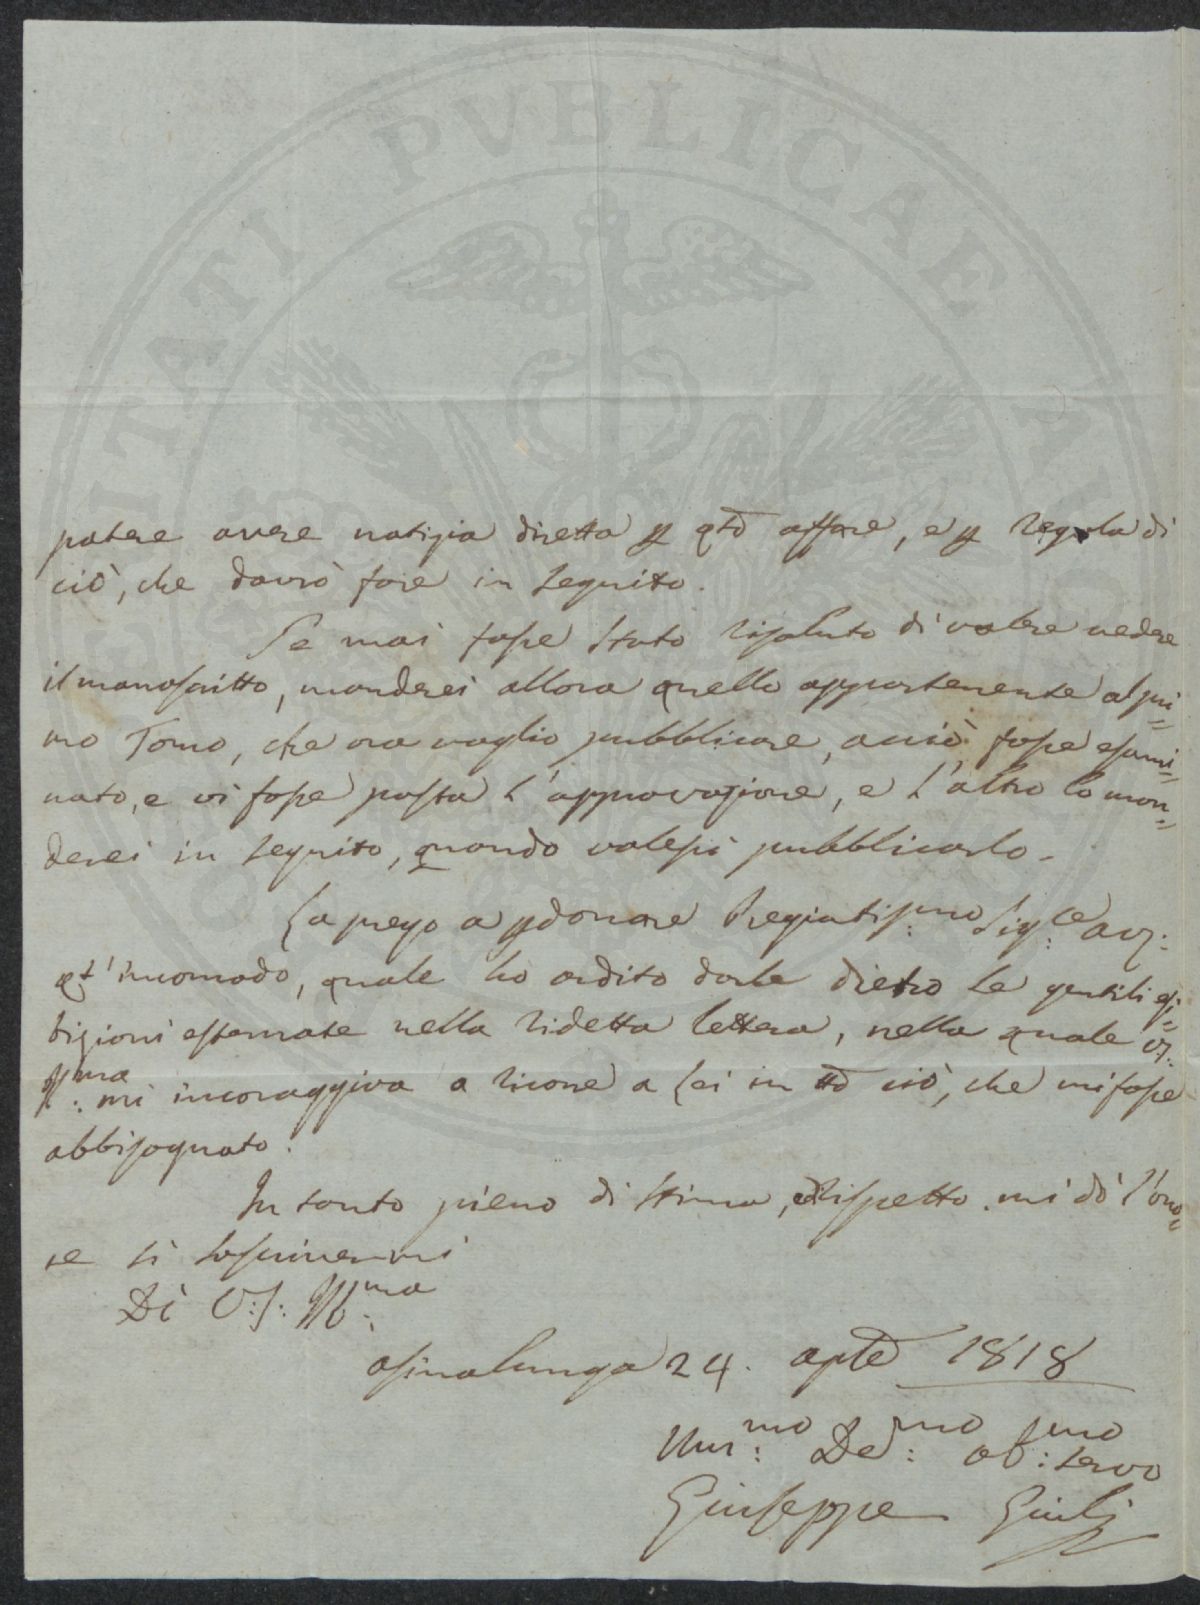 PUBLICAE
potere avere notizia diretta p qto affare, e p regola di
ciò, che dovrò fare in seguito.
Se mai fosse stato risoluto di volere vedere
il manoscritto, manderei allora quello appartenente al pri=
mo Tomo, che ora voglio pubblicare, acciò fosse esami=
nato, e vi fosse posta l'approvazione, e l'altro lo man=
derei in seguito, quando volessi pubblicarlo.
La prego a pdonare Pregiatis:mo Sig:re
qt'incomodo, quale ho ardito darle dietro le gentili esi=
bizioni esternate nella ridetta lettera, nella quale VS:
Ill:ma mi incoraggiva a ricorre a Lei in tto ciò, che mi fosse
abbisognato.
In tanto pieno di stima, e rispetto mi do l'ono=
re di soscrivermi
Di V:S: Ill:ma
Asinalunga 24. aple 1818
Um:mo De:mo ob:mo servo
Giuseppe Giulj